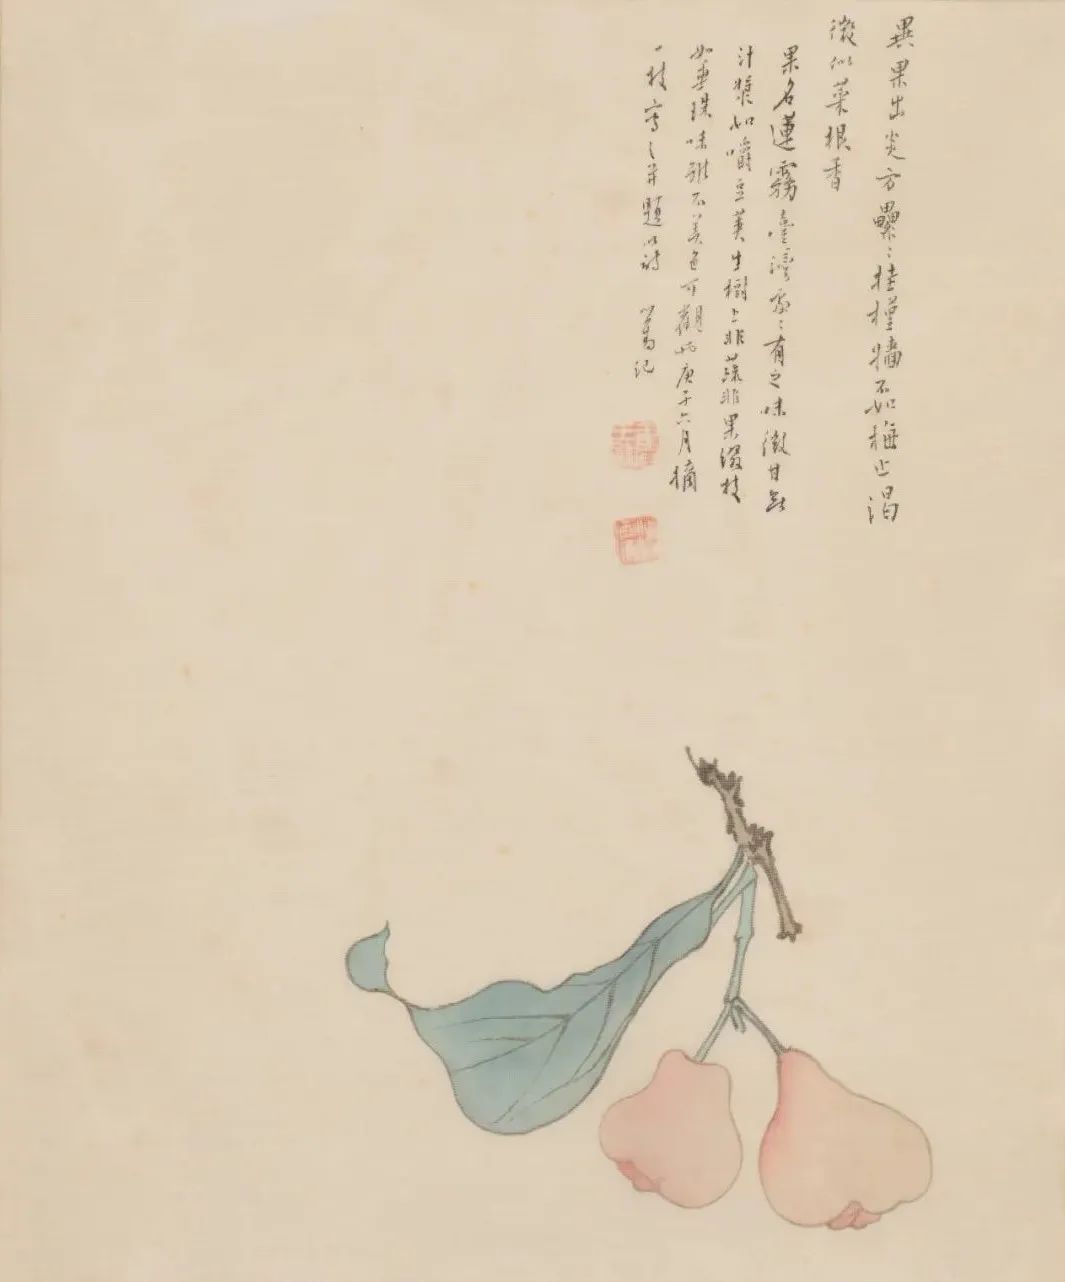 異果出炎方纍〻挂槿牆不如梅止渴
微似菜根香
果名蓮霧臺灣處〻有之味微甘無
汁漿如嚼豆莢生樹上非蔬非果綴枝
如垂珠味雖不美色可觀也庚子六月摘
一枝寫之并題以詩 心畬記